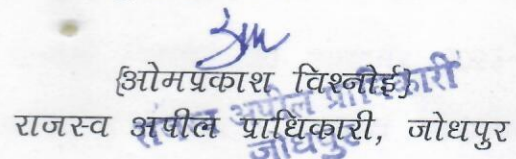 {ओमप्रकाश विश्नोई}
राजस्व अपील प्राधिकारी, जोधपुर
अपील प्राधिकारी
जोधपुर